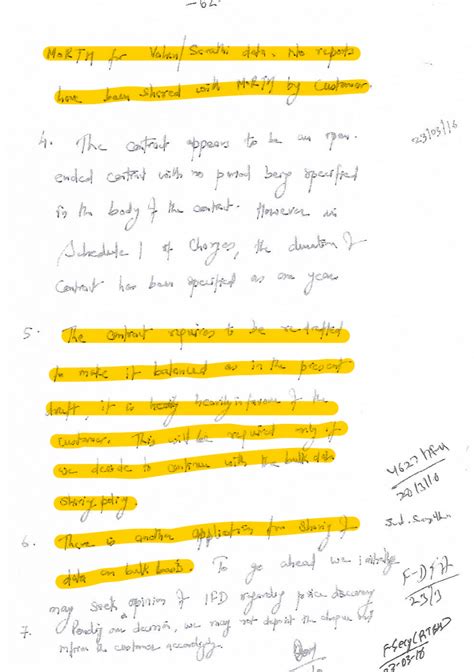 -62-
MoRTH for Vahan/Sarathi data. No reports
have been shared with MoRTH by Customer.
23/03/16
4. The contract appears to be an open-
ended contract with no period being specified
in the body of the contract. However in
Schedule 1 of Charges, the duration of
Contract has been specified as one year.
5. The contract requires to be re-drafted
to make it balanced as in the present
draft, it is heavily in favour of the
Customer. This will be required only if
we decide to continue with the bulk data
sharing policy.
28/3/16
6. There is another application for sharing of
data on bulk basis. To go ahead we
may seek opinion of IFD regarding price discovery
23/3
7. Pending our decision, we may not deposit the cheque but
inform the customer accordingly.
23-03-16